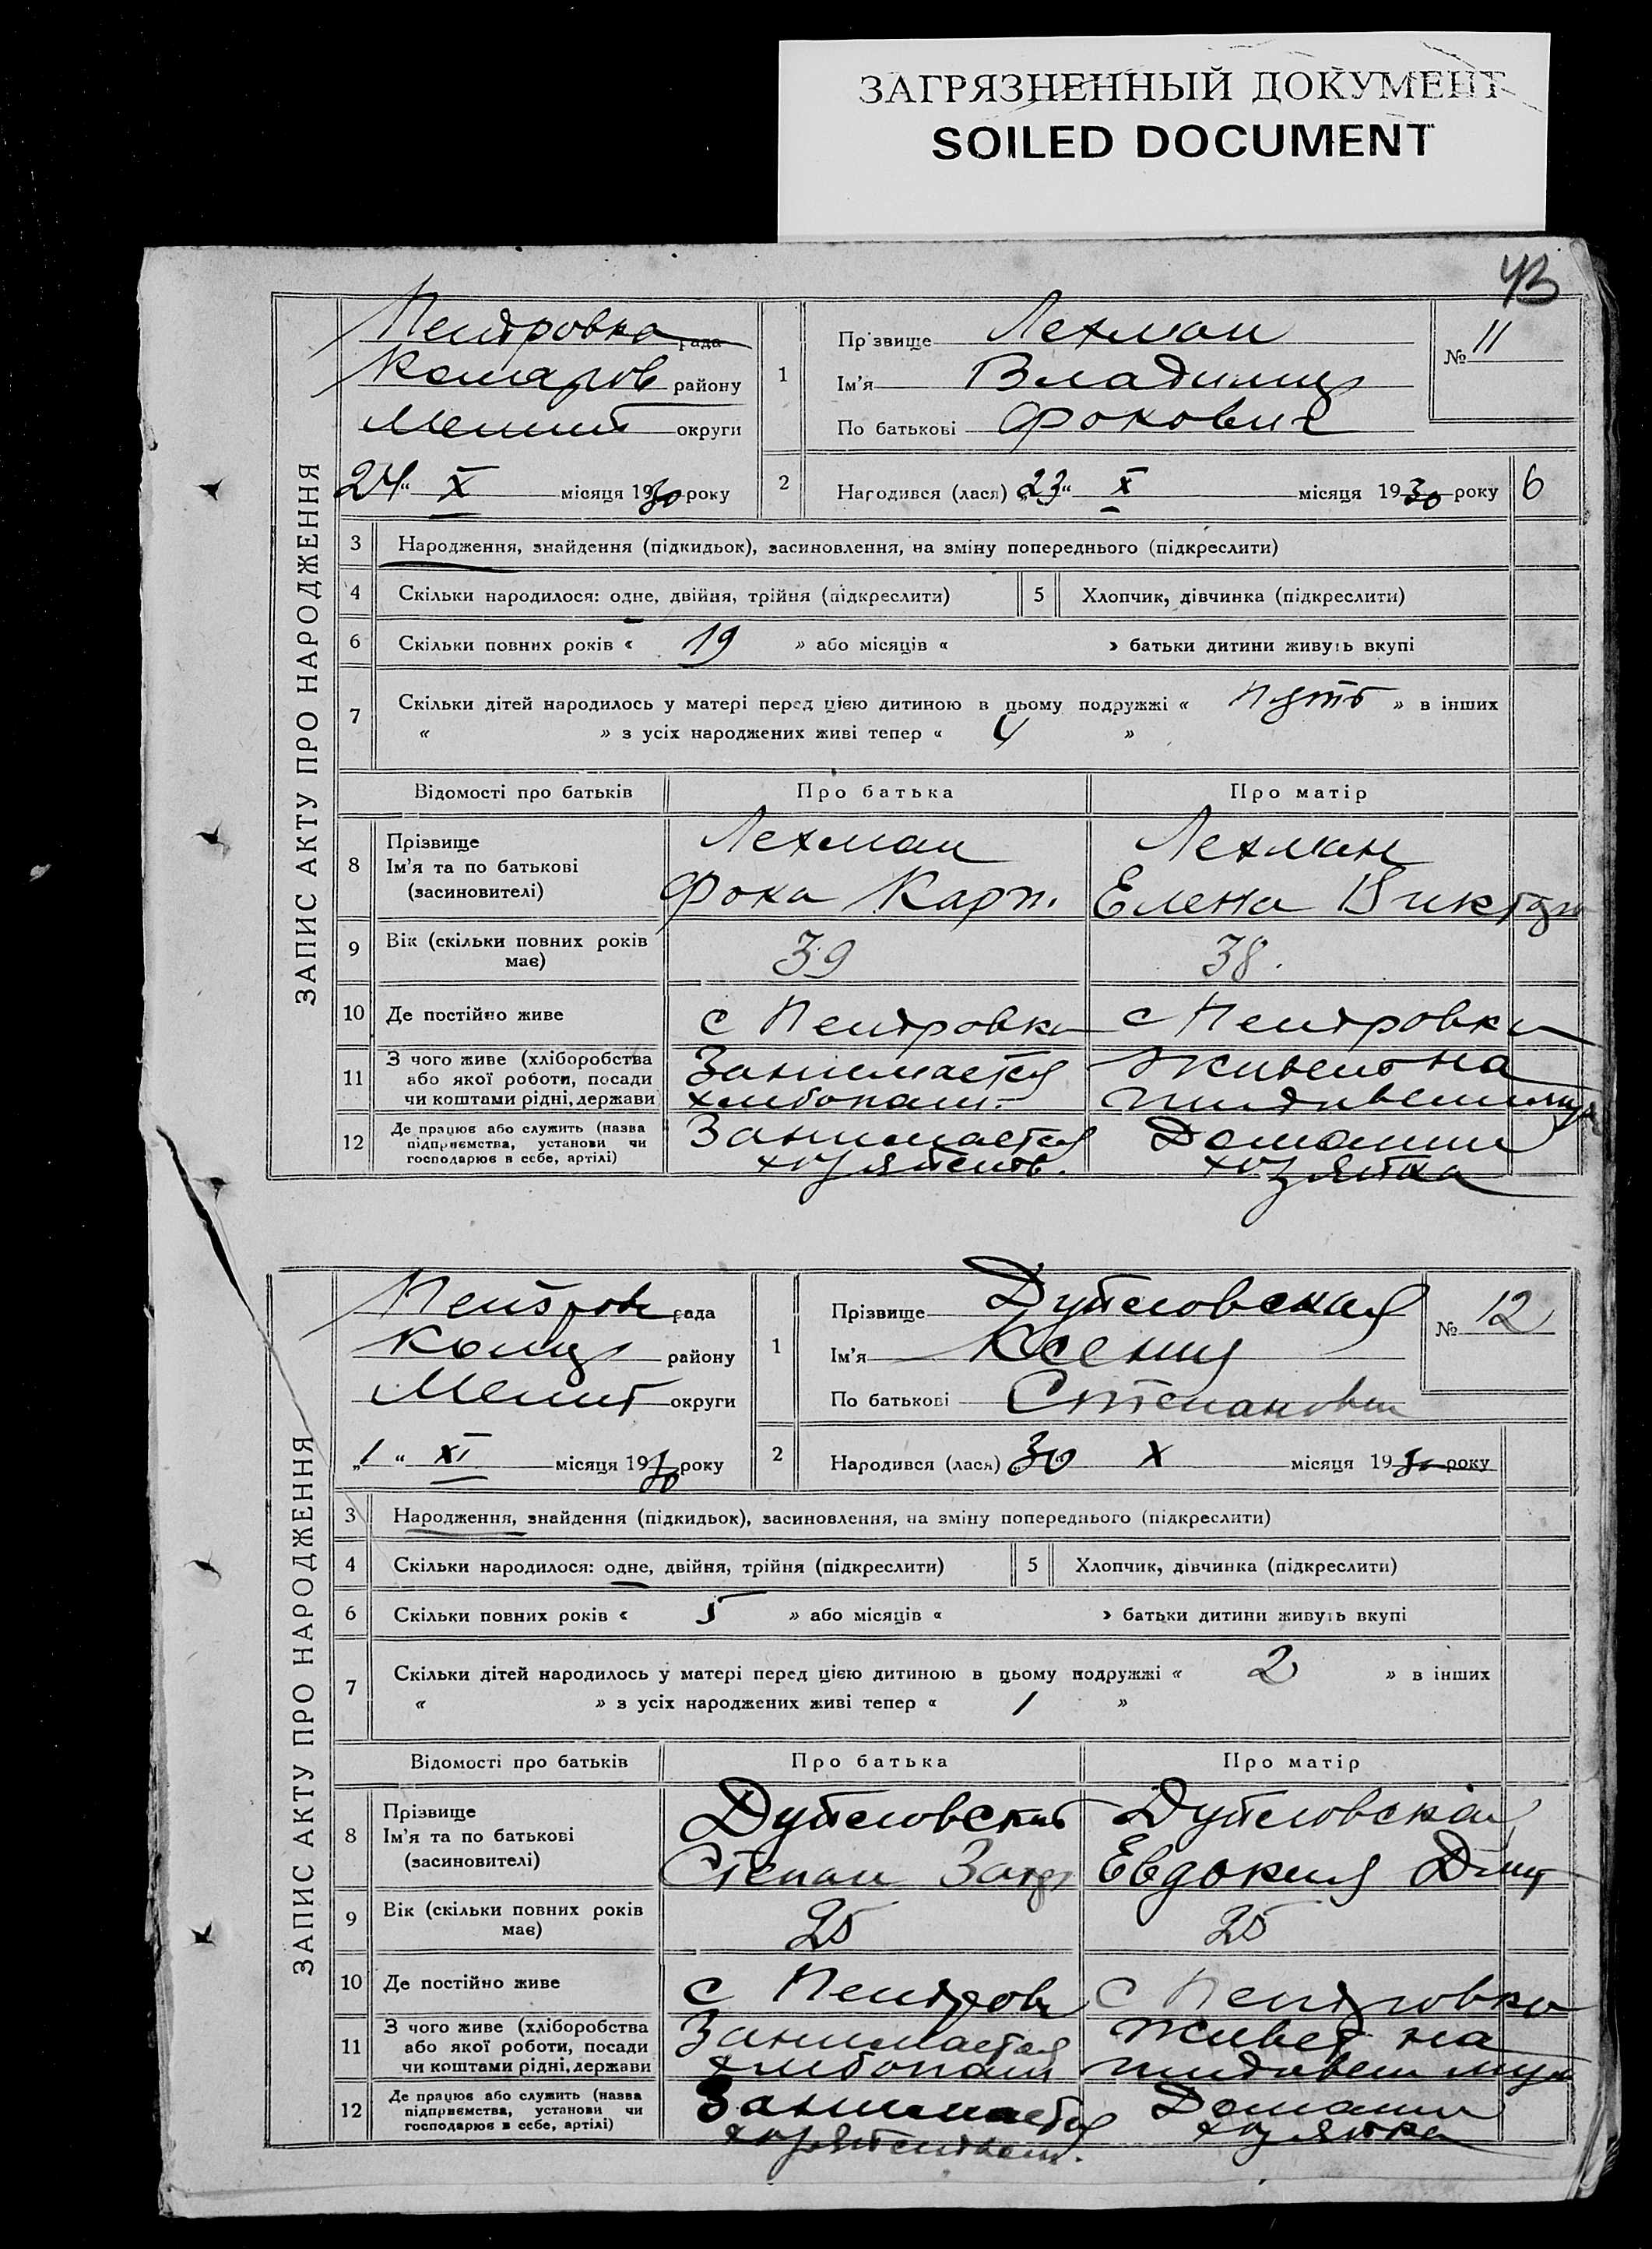 ЗАГРЯЗНЕННЫЙ ДОКУМЕНТ
SOILED DOCUMENT
43
ЗАПИС АКТУ ПРО НАРОДЖЕННЯ
Петровка рада
Комаров району
округи
24 " X місяця 1930 року
1
Прізвище Лехман
Ім'я Владимир
По батькові Фокович
№ 11
2 Народився (лася) 23 " X місяця 1930 року 6
3 Народження, знайдення (підкидьок), засиновлення, на зміну попереднього (підкреслити)
4 Скільки народилося: одне, двійня, трійня (підкреслити) 5 Хлопчик, дівчинка (підкреслити)
6 Скільки повних років « 19 » або місяців « » батьки дитини живуть вкупі
7 Скільки дітей народилось у матері перед цією дитиною в цьому подружжі « пять » в інших
« » з усіх народжених живі тепер « 4 »
Відомості про батьків Про батька Про матір
8 Прізвище
Ім'я та по батькові
(засиновителі)
Лехман
Фока Карп.
Лехман
Елена Виктор
9 Вік (скільки повних років
має) 39 38.
10 Де постійно живе с Петровка с Петровка
11 З чого живе (хліборобства
або якої роботи, посади
чи коштами рідні, держави
Занимается
хлебопаш.
Живет на
12 Де працює або служить (назва
підприємства, установи чи
господарює в себе, артілі)
Занимается
хозяйств.
Домашн
хозяйка
ЗАПИС АКТУ ПРО НАРОДЖЕННЯ
Петров рада
району
округи
„1 " XI місяця 1930 року
1
Прізвище
Ім'я Ксения
По батькові Степановн
№ 12
2 Народився (лася) 30 X місяця 1930 року
3 Народження, знайдення (підкидьок), засиновлення, на зміну попереднього (підкреслити)
4 Скільки народилося: одне, двійня, трійня (підкреслити) 5 Хлопчик, дівчинка (підкреслити)
6 Скільки повних років « 5 » або місяців « » батьки дитини живуть вкупі
7 Скільки дітей народилось у матері перед цією дитиною в цьому подружжі « 2 » в інших
« » з усіх народжених живі тепер « 1 »
Відомості про батьків Про батька Про матір
8 Прізвище
Ім'я та по батькові
(засиновителі)
Степан Захар
Евдокия Дмит
9 Вік (скільки повних років
має) 25 25
10 Де постійно живе с Петров с Петровка
11 З чого живе (хліборобства
або якої роботи, посади
чи коштами рідні, держави
Занимается
хлебопаш
Живет на
12 Де працює або служить (назва
підприємства, установи чи
господарює в себе, артілі)
Занимается
Домашн
хозяйка